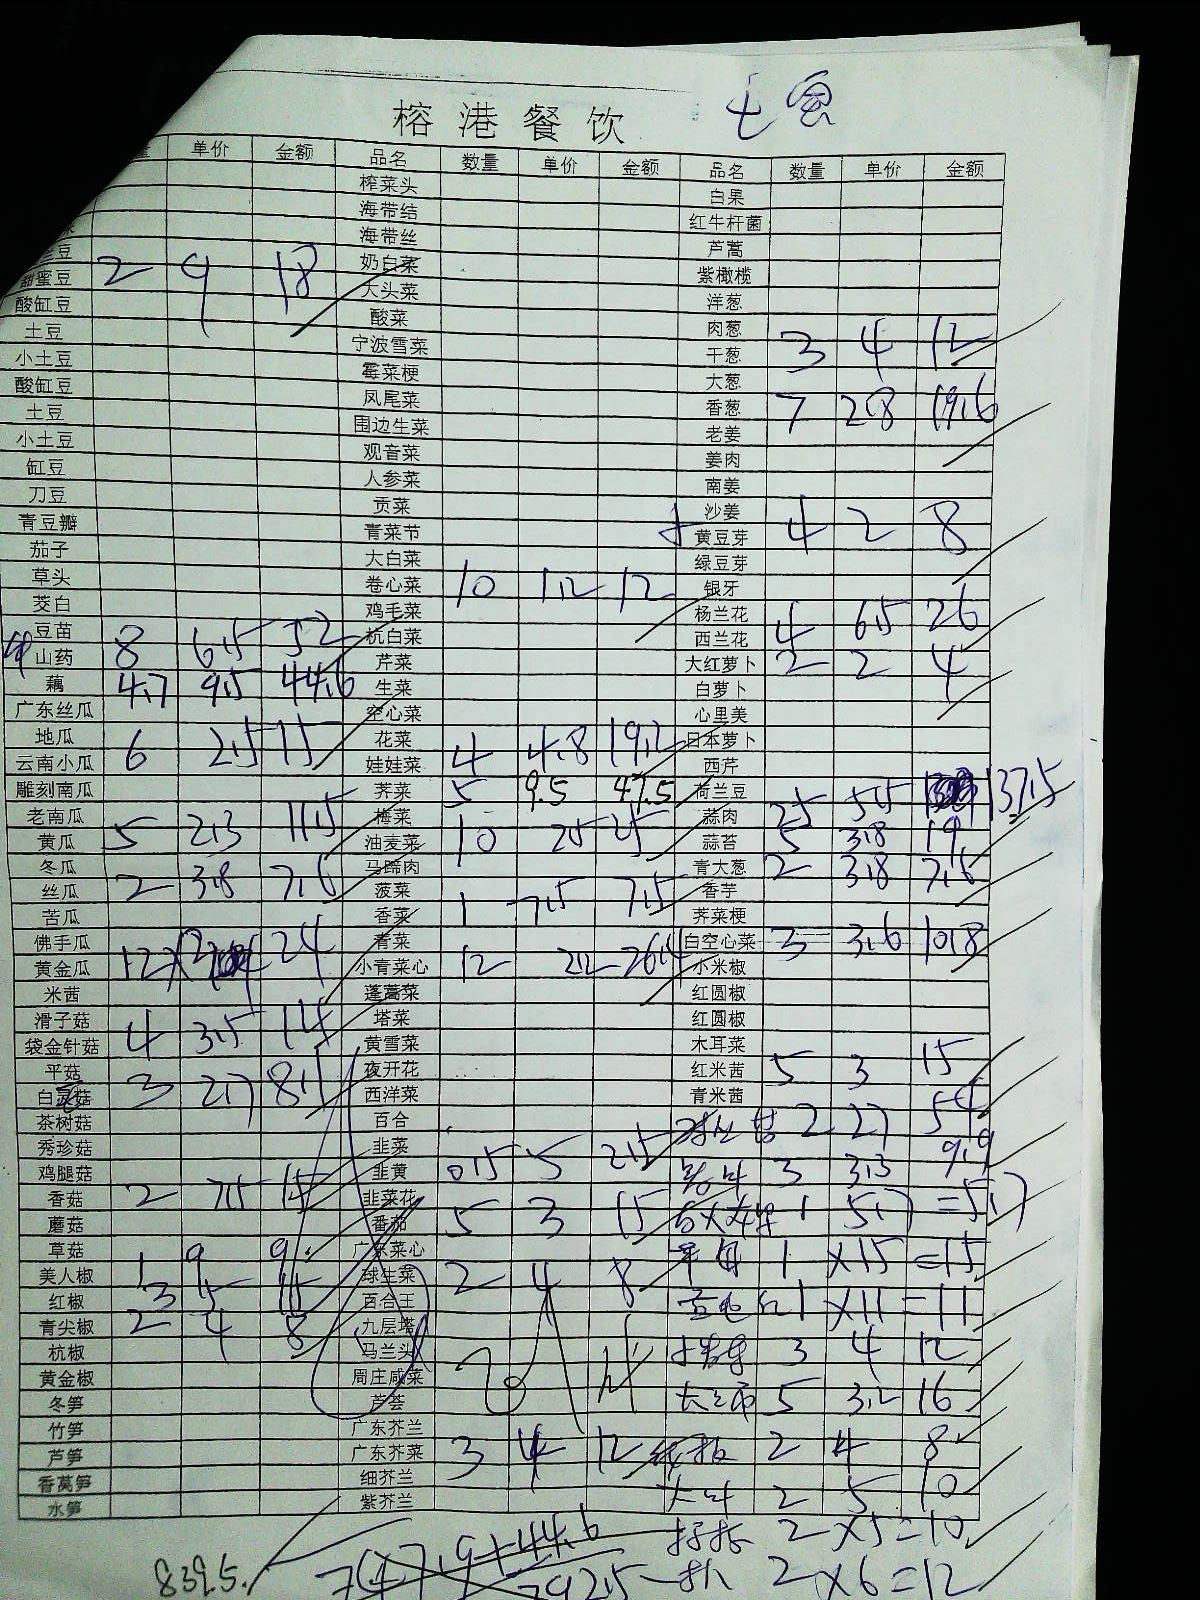 榕港餐饮
单价 金额 品名 数量 单价 金额 品名 数量 单价 金额
榨菜头 白果
海带结 红牛杆菌
海带丝 芦蒿
奶白菜 紫橄榄
甜蜜豆 2 9 18 大头菜 洋葱
酸缸豆 酸菜 肉葱
土豆 宁波雪菜 干葱 3 4 12
小土豆 霉菜梗 大葱
酸缸豆 凤尾菜 香葱 7 2.8 19.6
土豆 围边生菜 老姜
小土豆 观音菜 姜肉
缸豆 人参菜 南姜
刀豆 贡菜 沙姜
青豆瓣 青菜节 黄豆芽 4 2 8
茄子 大白菜 绿豆芽
草头 卷心菜 10 1.2 12 银牙
茭白 鸡毛菜 杨兰花
豆苗 杭白菜 西兰花 4 6.5 26
山药 8 6.5 52 芹菜 大红萝卜 2 2 4
藕 4.7 9.5 44.6 生菜 白萝卜
广东丝瓜 空心菜 心里美
地瓜 6 2.5 15 花菜 日本萝卜
云南小瓜 娃娃菜 4 4.8 19.2 西芹
雕刻南瓜 荠菜 5 9.5 47.5 荷兰豆 137.5
老南瓜 梅菜 蒜肉 25 5.5
黄瓜 5 2.3 11.5 油麦菜 10 2.5 25 蒜苔 5 3.8 19
冬瓜 马蹄肉 青大葱 2 3.8 7.6
丝瓜 2 3.8 7.6 菠菜 香芋
苦瓜 香菜 1 7.5 7.5 荠菜梗
佛手瓜 青菜 白空心菜 3 3.6 10.8
黄金瓜 12 24 小青菜心 12 2.2 26.4 小米椒
米茜 蓬蒿菜 红圆椒
滑子菇 塔菜 红圆椒
袋金针菇 4 3.5 14 黄雪菜 木耳菜
平菇 夜开花 红米茜 5 3 15
白菇 3 2.7 8.1 西洋菜 青米茜
茶树菇 百合 2 27 54
秀珍菇 韭菜
鸡腿菇 韭黄 0.5 5 2.5 3 3.3 9.9
香菇 2 7.5 15 韭菜花 1 5.7 =5.7
蘑菇 番茄 5 3 15
草菇 1 9 9 广东菜心 1 ×15 =15
美人椒 3 5 15 球生菜 2 4 8
红椒 百合王 1 ×11 =11
青尖椒 2 4 8 九层塔
杭椒 马兰头 3 4 12
黄金椒 周庄咸菜
冬笋 芦荟 5 3.2 16
竹笋 广东芥兰
芦笋 广东芥菜 3 4 12 2 4 8
香莴笋 细芥兰
水笋 紫芥兰 2 5 10
2 ×5=10
839.5. 747.9+44.6 792.5 2 ×6=12